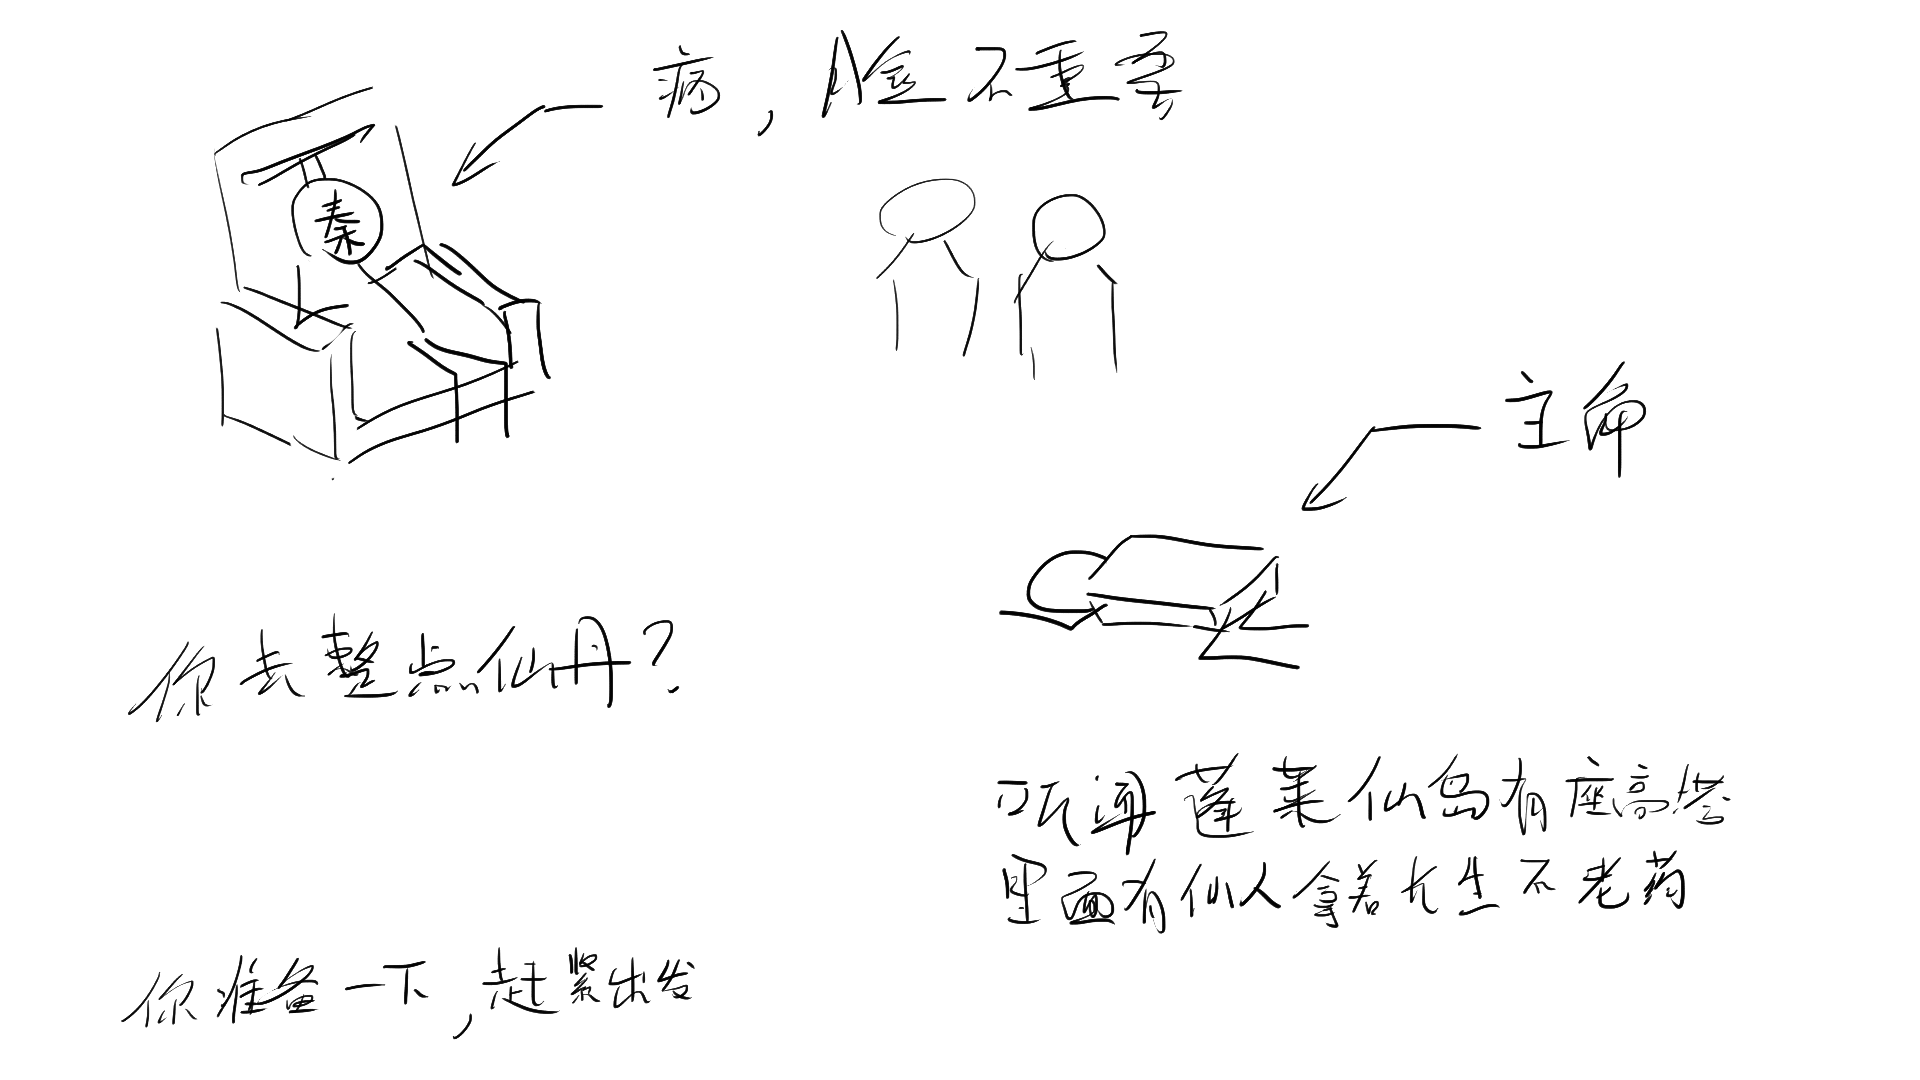 病，脸不重要
秦
主角
你去整点仙丹？
听闻蓬莱仙岛有座高塔
里面有仙人拿着长生不老药
你准备一下，赶紧出发